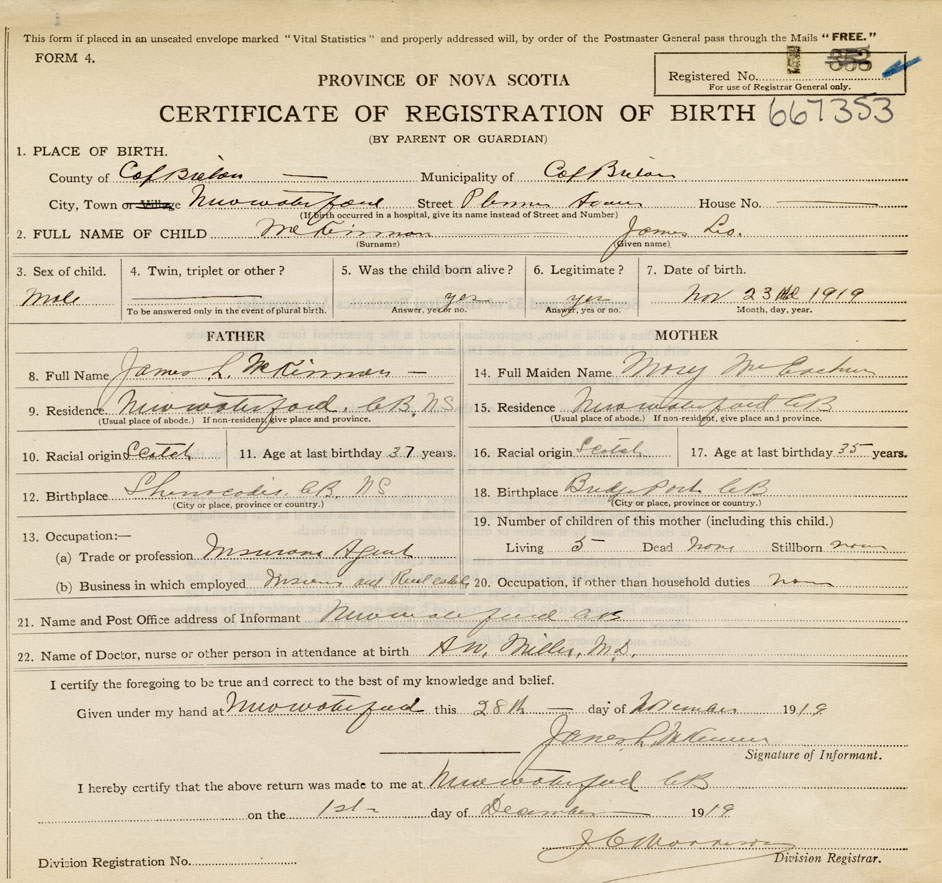 This form if placed in an unseated envelope marked "Vital Statistics" and properly addressed will, by order of the Postmaster General pass through the Mails "FREE."
FORM 4.
Registered No. 353
For use of Registrar General only.
PROVINCE OF NOVA SCOTIA
CERTIFICATE OF REGISTRATION OF BIRTH 667353
(BY PARENT OR GUARDIAN)
1. PLACE OF BIRTH.
County of Cap Breton Municipality of Cap Breton
City, Town or Village New Waterford Street Plummer House No.
(If birth occurred in a hospital, give its name instead of Street and Number)
2. FULL NAME OF CHILD McKinnon James Leo.
(Surname) (Given name)
3. Sex of child. 4. Twin, triplet or other? 5. Was the child born alive? 6. Legitimate? 7. Date of birth.
Male yes yes Nov 23rd 1919
To be answered only in the event of plural birth. Answer, yes or no. Answer, yes or no. Month, day, year.
FATHER MOTHER
8. Full Name James L. McKinnon 14. Full Maiden Name Mary McEachern
9. Residence New Waterford, C.B, NS 15. Residence New Waterford CB
(Usual place of abode.) If non-resident, give place and province. (Usual place of abode.) If non-resident, give place and province.
10. Racial origin Scotch 11. Age at last birthday 37 years. 16. Racial origin Scotch 17. Age at last birthday 35 years.
12. Birthplace C.B. NS 18. Birthplace Bridgeport CB
(City or place, province or country.) (City or place, province or country.)
19. Number of children of this mother (including this child.)
13. Occupation:—
(a) Trade or profession Insurance Agent Living 5 Dead None Stillborn none
(b) Business in which employed Insurance and Real estate 20. Occupation, if other than household duties none
21. Name and Post Office address of Informant New Waterford CB
22. Name of Doctor, nurse or other person in attendance at birth A.W. Miller, M.D.
I certify the foregoing to be true and correct to the best of my knowledge and belief.
Given under my hand at New Waterford this 28th day of November 1919
James L McKinnon
Signature of Informant.
I hereby certify that the above return was made to me at New Waterford CB
on the 1st day of December 1919
Division Registration No. Division Registrar.